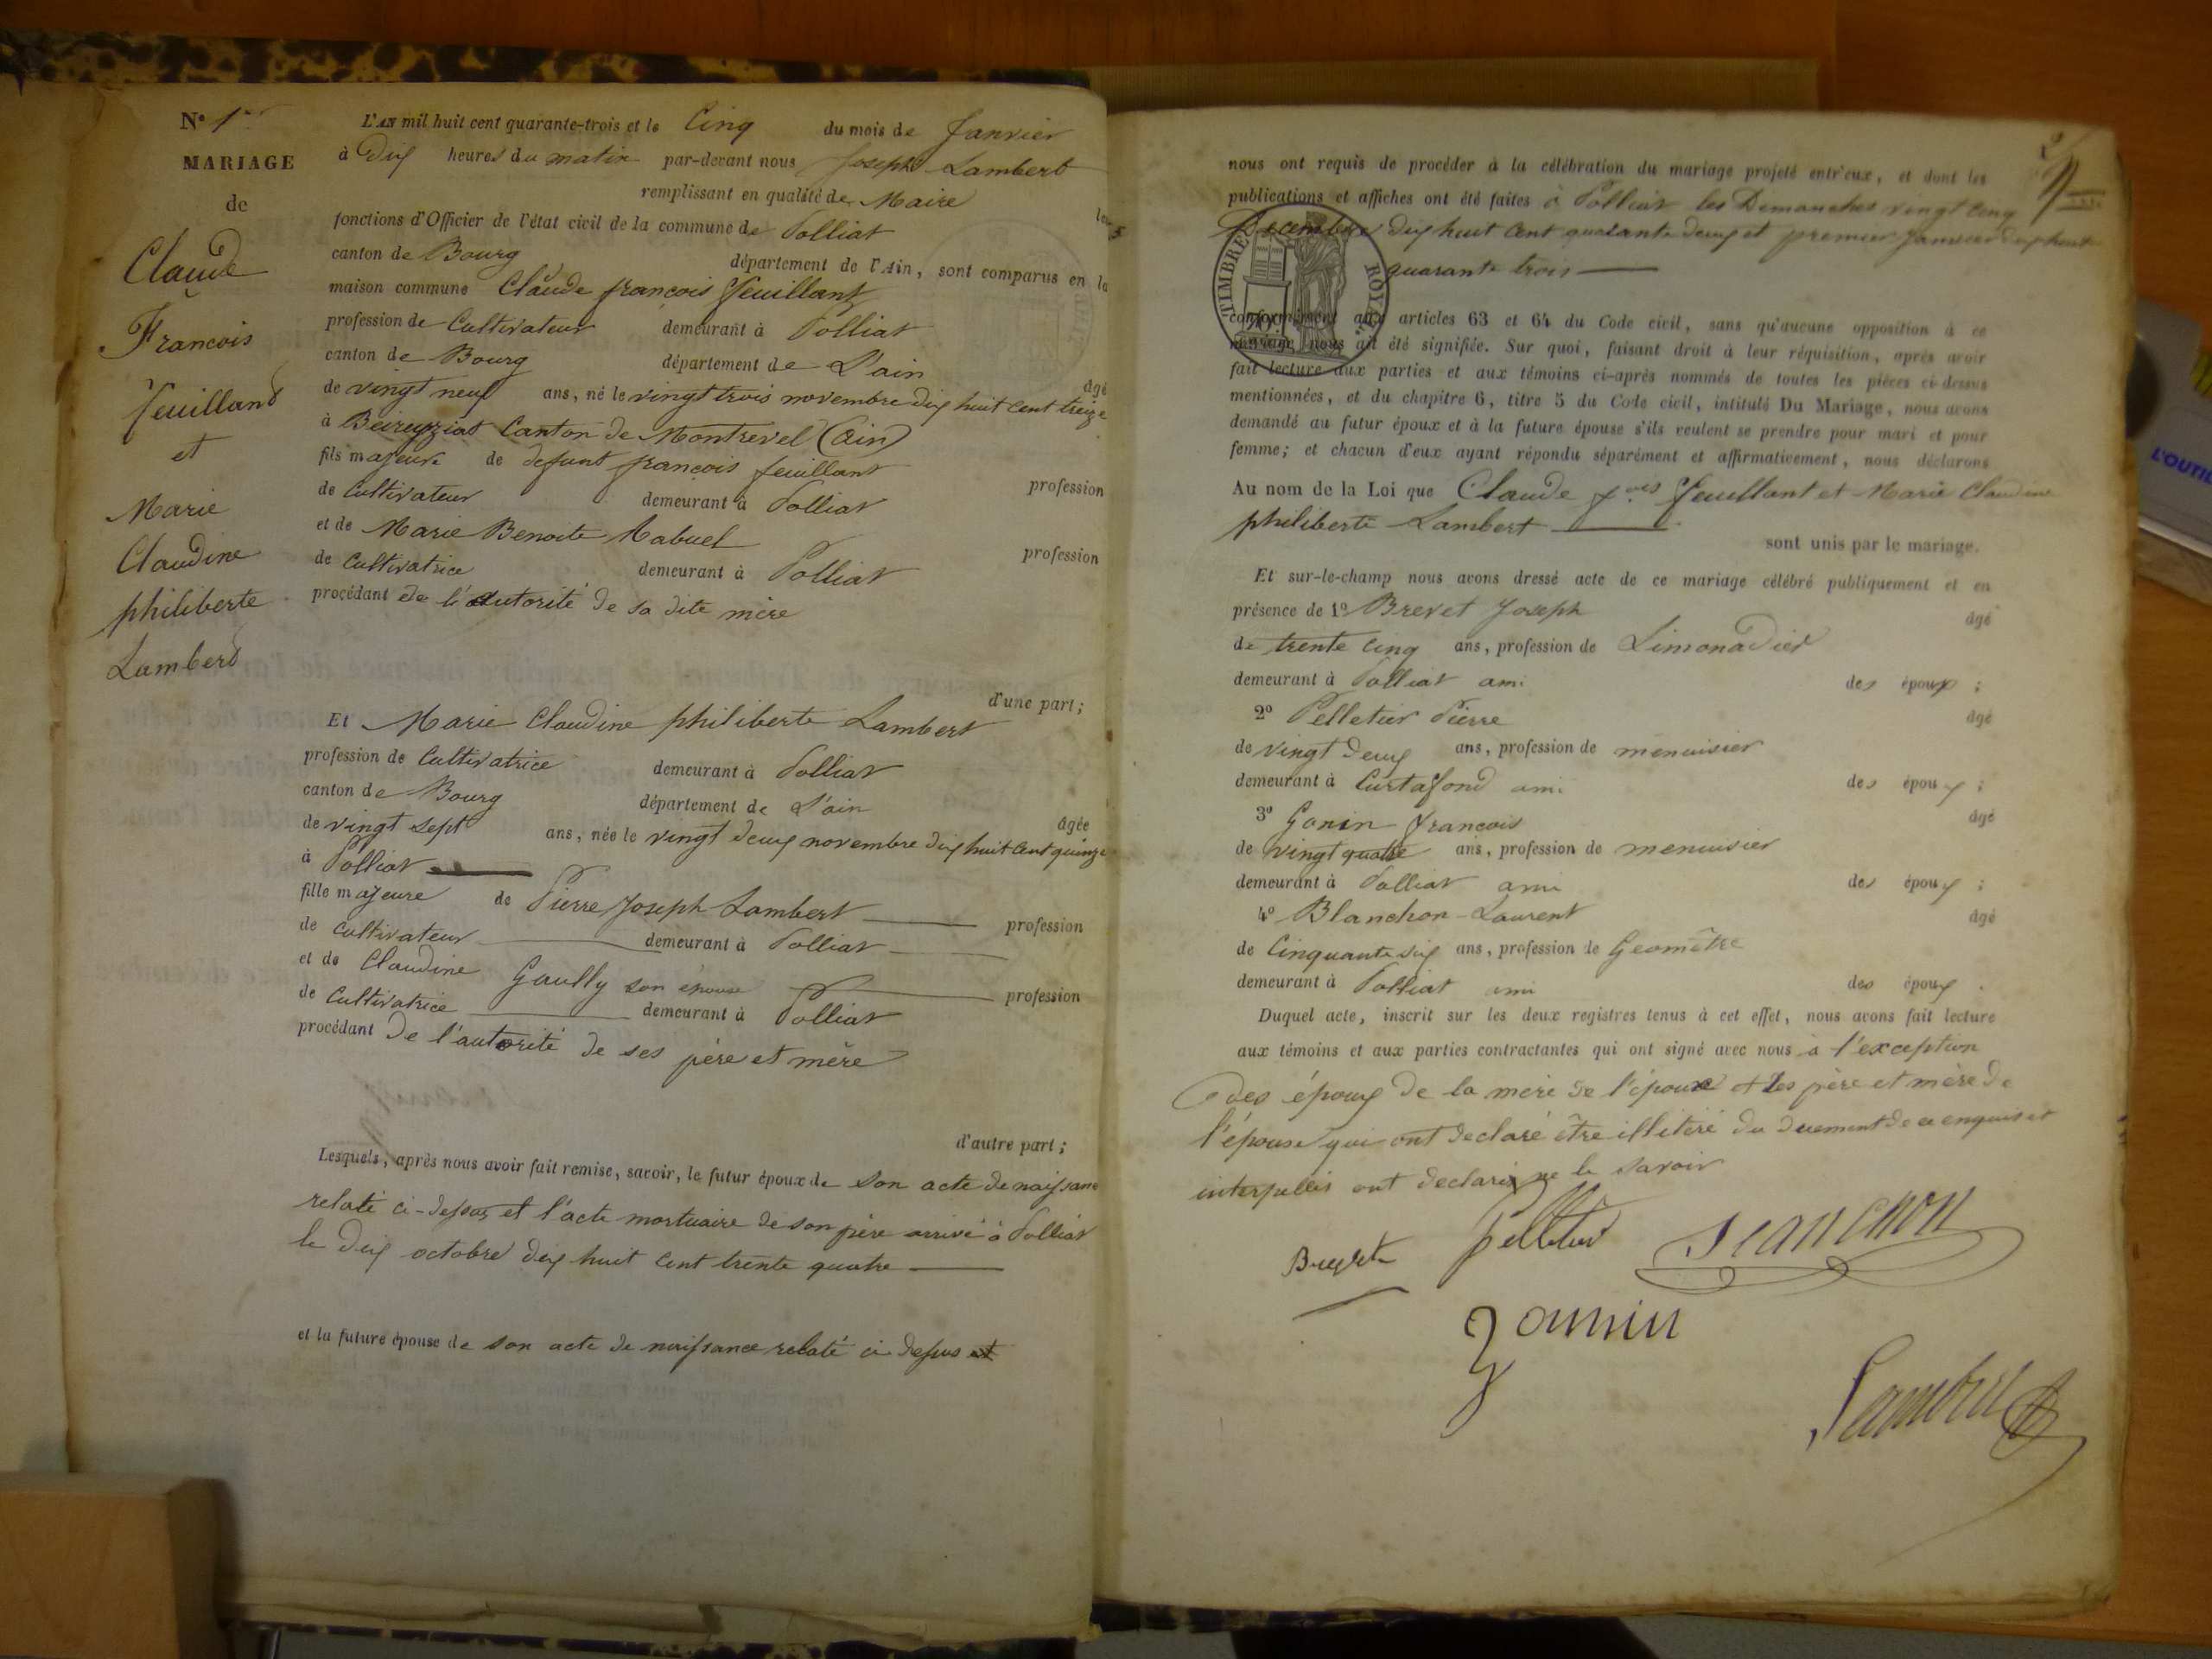 N° 1er
MARIAGE
de
Claude
Francois
feuilland
et
Marie
Claudine
philiberte
Lambert
L'AN mil huit cent quarante-trois et le Cinq du mois de Janvier
à Dix heures du matin par-devant nous Joseph Lambert
remplissant en qualité de Maire les
fonctions d'Officier de l'état civil de la commune de Polliat
canton de Bourg département de l'Ain, sont comparus en la
maison commune Claude françois feuillant
profession de Cultivateur demeurant à Polliat
canton de Bourg département de L'ain
âgé
de vingt neuf ans, né le vingt trois novembre dix huit cent treize
à Beireyziat Canton de Montrevel (ain)
fils majeure de defunt françois feuillant
profession
de Cultivateur demeurant à Polliat
et de Marie Benoite Rabuel
profession
de Cultivatrice demeurant à Polliat
procédant de l'autorité de sa dite mère
d'une part;
Et Marie Claudine philiberte Lambert
profession de Cultivatrice demeurant à Polliat
canton de Bourg département de L'ain
âgée
de vingt sept ans, née le vingt deux novembre dix huit cent quinze
à Polliat
fille majeure de Pierre Joseph Lambert profession
de cultivateur demeurant à Polliat
et de Claudine Gaully son épouse profession
de Cultivatrice demeurant à Polliat
procédant de l'autorité de ses père et mère
d'autre part;
Lesquels, après nous avoir fait remise, savoir, le futur époux de son acte de naissance
relaté ci-dessus et l'acte mortuaire de son père arrivé à Polliat
le dix octobre dix huit cent trente quatre
et la future épouse de son acte de naissance relaté ci dessus et
2
nous ont requis de procéder à la célébration du mariage projeté entr'eux, et dont les
publications et affiches ont été faites à Polliat les Dimanches vingt cinq
Decembre dix huit cent quarante deux et premier janvier dix huit
quarante trois
TIMBRE ROYAL
conformément aux articles 63 et 64 du Code civil, sans qu'aucune opposition à ce
mariage nous ait été signifiée. Sur quoi, faisant droit à leur réquisition, après avoir
fait lecture aux parties et aux témoins ci-après nommés de toutes les pièces ci-dessus
mentionnées, et du chapitre 6, titre 5 du Code civil, intitulé Du Mariage, nous avons
demandé au futur époux et à la future épouse s'ils veulent se prendre pour mari et pour
femme; et chacun d'eux ayant répondu séparément et affirmativement, nous déclarons
Au nom de la Loi que Claude f.ois feuillant et Marie Claudine
philiberte Lambert
sont unis par le mariage.
Et sur-le-champ nous avons dressé acte de ce mariage célébré publiquement et en
présence de 1° Brevet Joseph âgé
de trente cinq ans, profession de Limonadier
demeurant à Polliat ami des époux ;
2° Pelletier Pierre âgé
de vingt deux ans, profession de menuisier
demeurant à Curtafond ami des époux ;
3° Gonin françois âgé
de vingt quatre ans, profession de menuisier
demeurant à Polliat ami des époux ;
4° Blanchon Laurent âgé
de Cinquante six ans, profession de Geomètre
demeurant à Polliat ami des époux .
Duquel acte, inscrit sur les deux registres tenus à cet effet, nous avons fait lecture
aux témoins et aux parties contractantes qui ont signé avec nous à l'exception
des époux de la mère de l'époux et les père et mère de
l'épouse qui ont declaré être illitéré du duement de ce enquis et
interpellés ont declaré ne le savoir
pelletier
Lambert
L'OUTIL